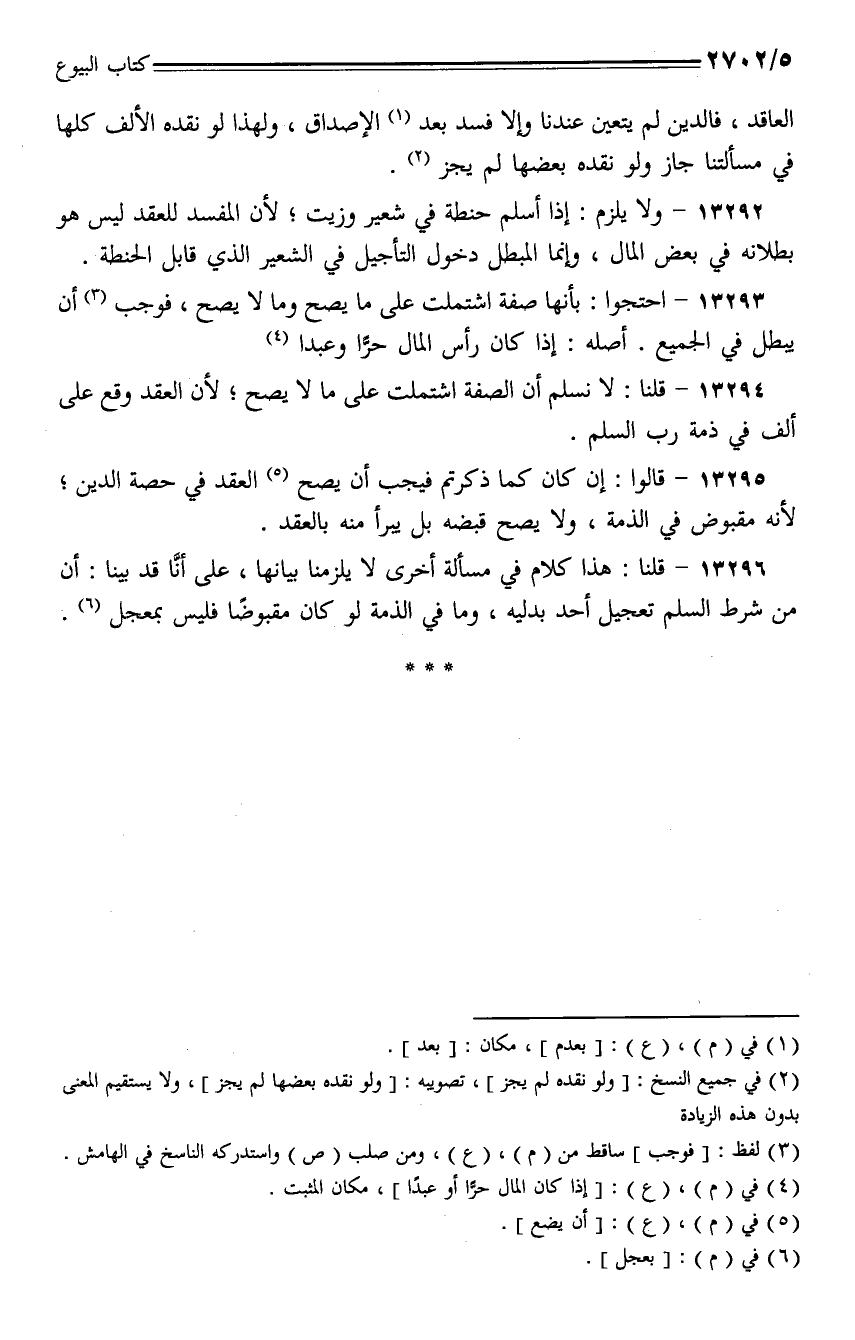 ٢٧٠٢/٥ كتاب البيوع
العاقد ، فالدين لم يتعين عندنا وإلا فسد بعد (١) الإصداق ، ولهذا لو نقده الألف كلها
في مسألتنا جاز ولو نقده بعضها لم يجز (٢) .
١٣٢٩٢ - ولا يلزم : إذا أسلم حنطة في شعير وزيت ؛ لأن المفسد للعقد ليس هو
بطلانه في بعض المال ، وإنما المبطل دخول التأجيل في الشعير الذي قابل الحنطة .
١٣٢٩٣ - احتجوا : بأنها صفة اشتملت على ما يصح وما لا يصح ، فوجب (٣) أن
يبطل في الجميع . أصله : إذا كان رأس المال حرًّا وعبدا (٤)
١٣٢٩٤ - قلنا : لا نسلم أن الصفة اشتملت على ما لا يصح ؛ لأن العقد وقع على
ألف في ذمة رب السلم .
١٣٢٩٥ - قالوا : إن كان كما ذكرتم فيجب أن يصح (٥) العقد في حصة الدين ؛
لأنه مقبوض في الذمة ، ولا يصح قبضه بل يبرأ منه بالعقد .
١٣٢٩٦ - قلنا : هذا كلام في مسألة أخرى لا يلزمنا بيانها ، على أنَّا قد بينا : أن
من شرط السلم تعجيل أحد بدليه ، وما في الذمة لو كان مقبوضًا فليس بمعجل (٦) .
* * *
(١) في ( م ) ، ( ع ) : [ بعدم ] ، مكان : [ بعد ] .
(٢) في جميع النسخ : [ ولو نقده لم يجز ] ، تصويبه : [ ولو نقده بعضها لم يجز ] ، ولا يستقيم المعنى
بدون هذه الزيادة
(٣) لفظ : [ فوجب ] ساقط من ( م ) ، ( ع ) ، ومن صلب ( ص ) واستدركه الناسخ في الهامش .
(٤) في ( م ) ، ( ع ) : [ إذا كان المال حرًّا أو عبدًا ] ، مكان المثبت .
(٥) في ( م ) ، ( ع ) : [ أن يضع ] .
(٦) في ( م ) : [ بعجل ] .